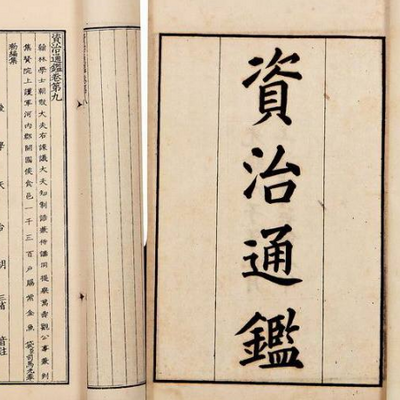 資治通鑑
資治通鑑卷第九
翰林學士朝散大夫右諫議大夫知制誥兼侍講同提舉萬壽觀公事兼判
集賢院上護軍河內郡開國侯食邑一千三百戶賜紫金魚袋臣司馬光奉
勑編集
後學天台胡三省音註